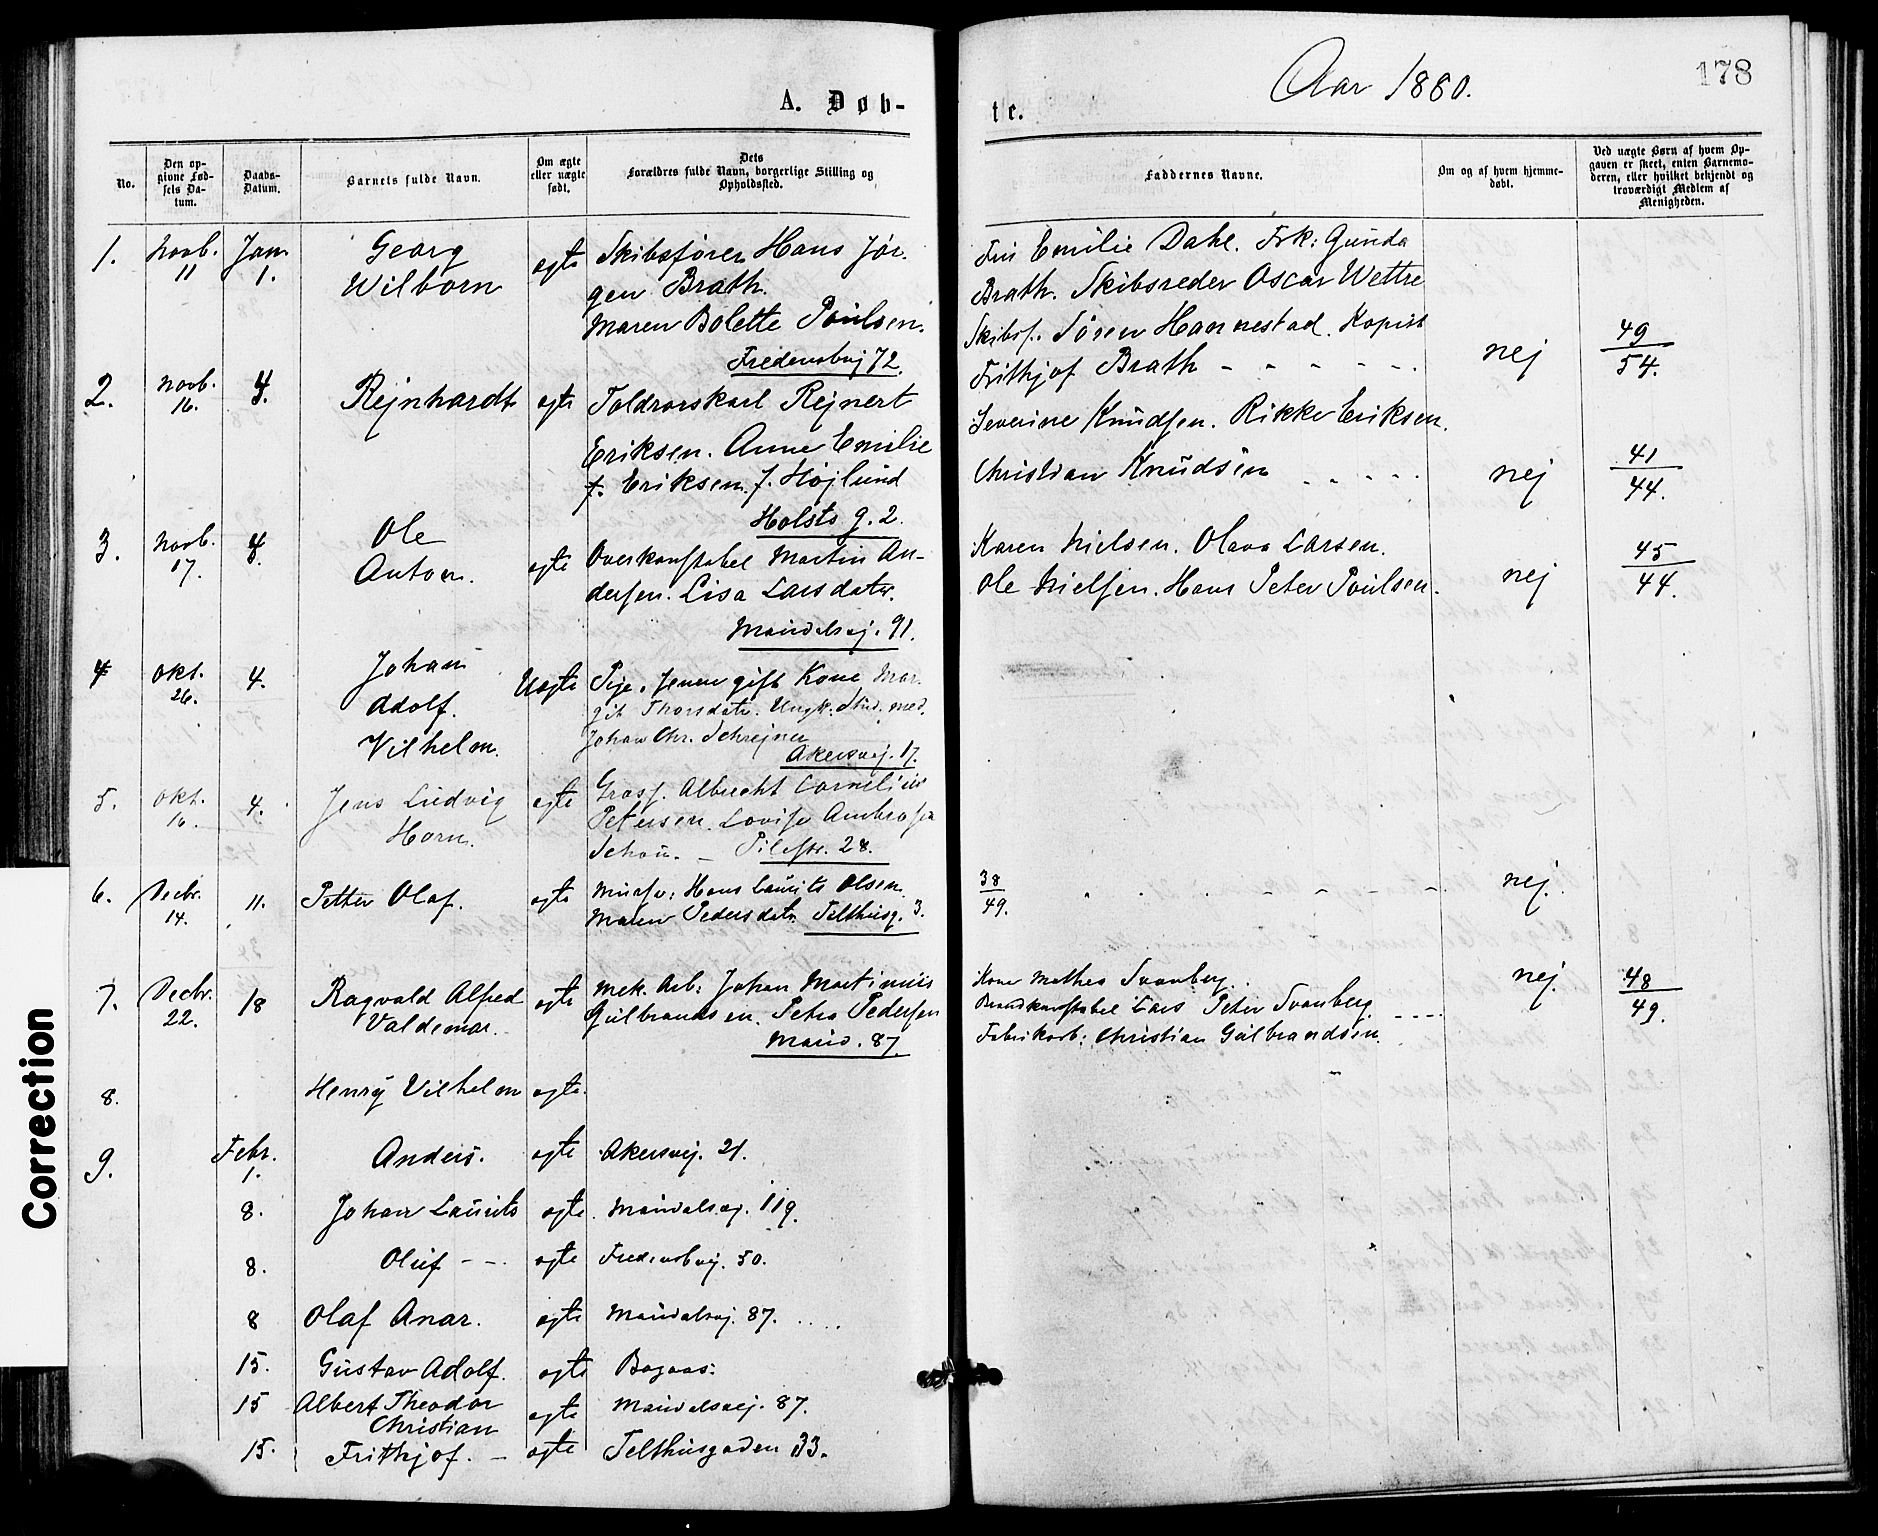 Aar 1880.
178
A. Døb-
te.
No.
Den op-
givne Fød-
sels Da-
tum.
Daabs-
Datum.
Barnets fulde Navn.
Om ægte
eller uægte
født.
Dets
Forældres fulde Navn, borgerlige Stilling og
Opholdssted.
Faddernes Navne.
Om og af hvem hjemme-
døbt.
Ved uægte Børn af hvem Op-
gaven er skeet, enten Barnemo-
deren, eller hvilket bekjendt og
troværdigt Medlem af
Menigheden.
1.
Novb.
11
Jan.
1.
Georg
Wilborn
ægte
Skibsfører Hans Jør-
gen Brath.
Maren Bolette Poulsen.
Fredensbvej 72.
Emilie Dahl. Frk: Gunda
Brath. Skibsreder Oscar Wettre
Skibsf. Søren Hannestad. Kopist
Frithjof Brath - - - - -
nej
49
54.
2.
Novb.
16.
4.
Rejnhardt
ægte
Toldrorskarl Rejnert
Eriksen. Anne Emilie
f. Eriksen. f. Højlund
Holsts g. 2.
Severine Knudsen. Rikke Eriksen.
Christian Knudsen
nej
41
44.
3.
Novb.
17.
4.
Ole
Anton.
ægte
Overkonstabel Martin An-
dersen. Lisa Larsdatr.
Maridalsvej. 91.
Karen Nielsen. Olava Larsen.
Ole Nielsen. Hans Peter Poulsen.
nej
45
44.
4
Okt.
26.
4.
Johan
Adolf.
Vilhelm.
Uægte
Pige, senere gift Kone Mar-
git Thorsdatr. Ungk. Stud. med.
Johan Chr. Schrejner
Akersvej. 17.
5.
Okt.
16.
4.
Jens Ludvig
Horn.
ægte
Gross. Albrecht Cornelius
Petersen. Lovise Ambrosia
Schou. - Pilestr. 28.
6.
Decbr.
14.
11.
Petter Olaf.
ægte
Mursv: Hans Laurits Olsen.
Maren Pedersdatr. Telthusg. 3.
38
49.
nej.
7.
Decbr.
22.
18
Ragvald Alfred
Valdemar.
ægte
Mek. Arb: Johan Martinius
Gulbrandsen. Petra Pedersen
Marid. 87
Kone Mathea Svanberg.
Brandkonstabel Lars Peter Svanberg
Fabrikarb: Christian Gulbrandsen.
nej.
48
49.
8.
Henry Vilhelm
ægte.
9.
Febr.
1.
Anders.
ægte
Akersvej. 21.
8.
Johan Laurits
ægte.
Maridalsvej. 119.
8.
Oluf - -.
ægte
Fredensbvej. 50.
8
Olaf Anar.
ægte
Maridalsvej. 87.
15.
Gustav Adolf.
ægte
Bagaas.
15
Albert Theodor
Christian
ægte
Maridalsvej. 87.
15.
Frithjof. -
ægte
Telthusgaden 33.
Correction